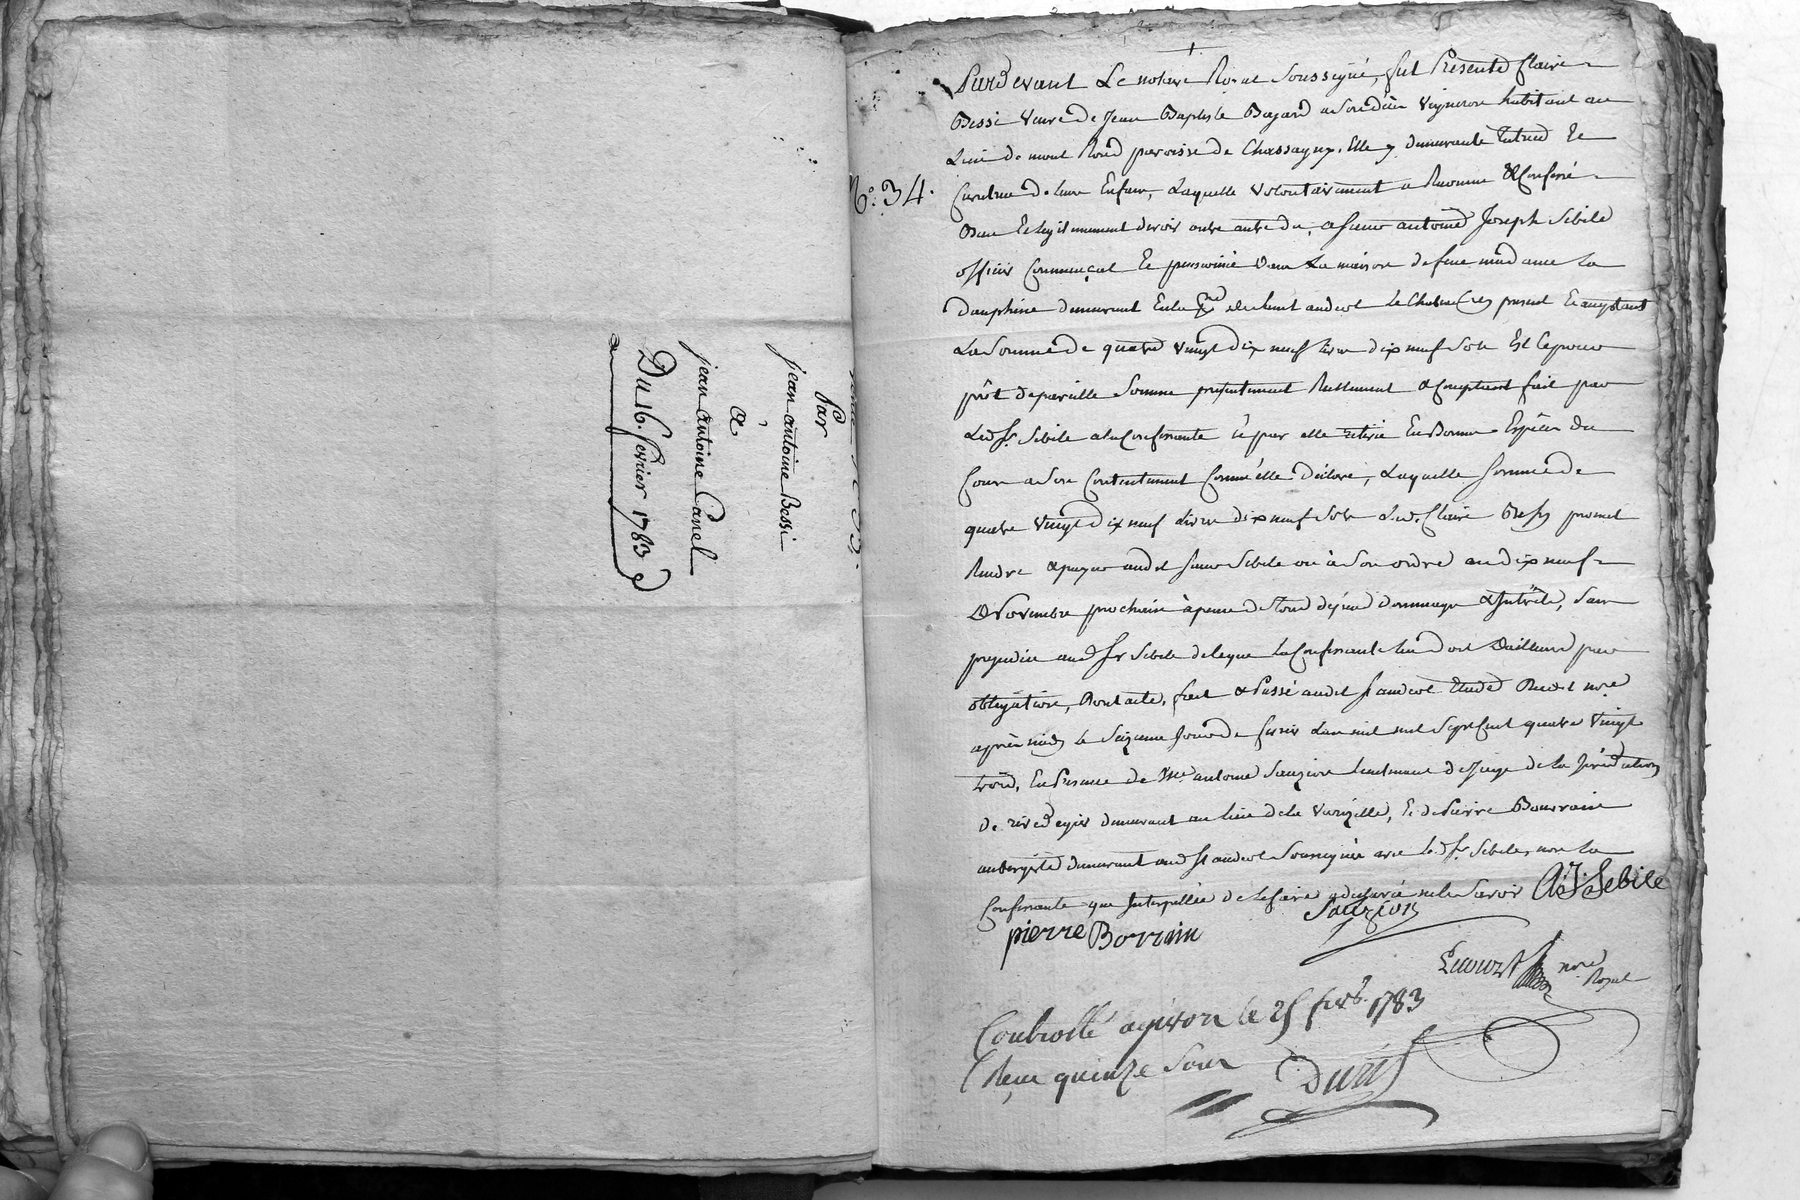 Par
jean antoine Bessi
a
jean antoine Canel
Du 16. fevrier 1783
N.° 34.
Pardevant Le notaire Royal Soussigné, fut Presente Claire
Bessi veuve de Jean Baptiste Bajard vigneron habitant au
Lieu de mont Rond paroisse de Chassagny, Elle y demeurante tutrice Et
Curatrice de leurs Enfans, Laquelle volontairement a Reconnu & Confessé
Bien Et legitimement devoir a sieur antoine Joseph Sebile
officier Et pensionné de La maison de feue madame La
Dauphine demeurant andeol Le Chateau present Et acceptant
La Somme de quatre vingt dix neuf livres dix neuf Sols Et Ce pour
prêt de pareille Somme presentement Reellement & Comptant fait par
Led. Sr. Sebile a la Confessante Et par elle retirée En Bonnes Espèces du
Cours a Son Contentement Comme elle déclare, Laquelle Somme de
quatre vingt dix neuf Livres dix neuf Sols Lad. Claire Bessy promet
Rendre & payer audit Sieur Sebile ou à Son ordre au dix neuf
Novembre prochain à peine de tous dépens dommages & Intérêts, Sans
prejudice aud. Sr Sebile de Ce que La Confessante lui doit D'ailleurs par
obligation, Dont acte, fait & Passé audit St andeol Etude Dudit nore
après midy le Seizieme Jour de fevrier L'an mil Sept Cent quatre vingt
trois, En Presence de Me antoine Sauzion Lieutenant de Juge de La Jurisdiction
de rivedegier demeurant au lieu de la Varizelle, Et de Pierre Bourrain
aubergiste demeurant aud. St andeol Soussignés avec led. Sr. Sebile, non La
Confessante qui Interpellée de Le faire a declaré ne le Savoir A. J. Sebile
Sauzion
pierre Borrain
nore
Royal
Controllé a givors le 25 fevr. 1783
Reçu quinze Sous